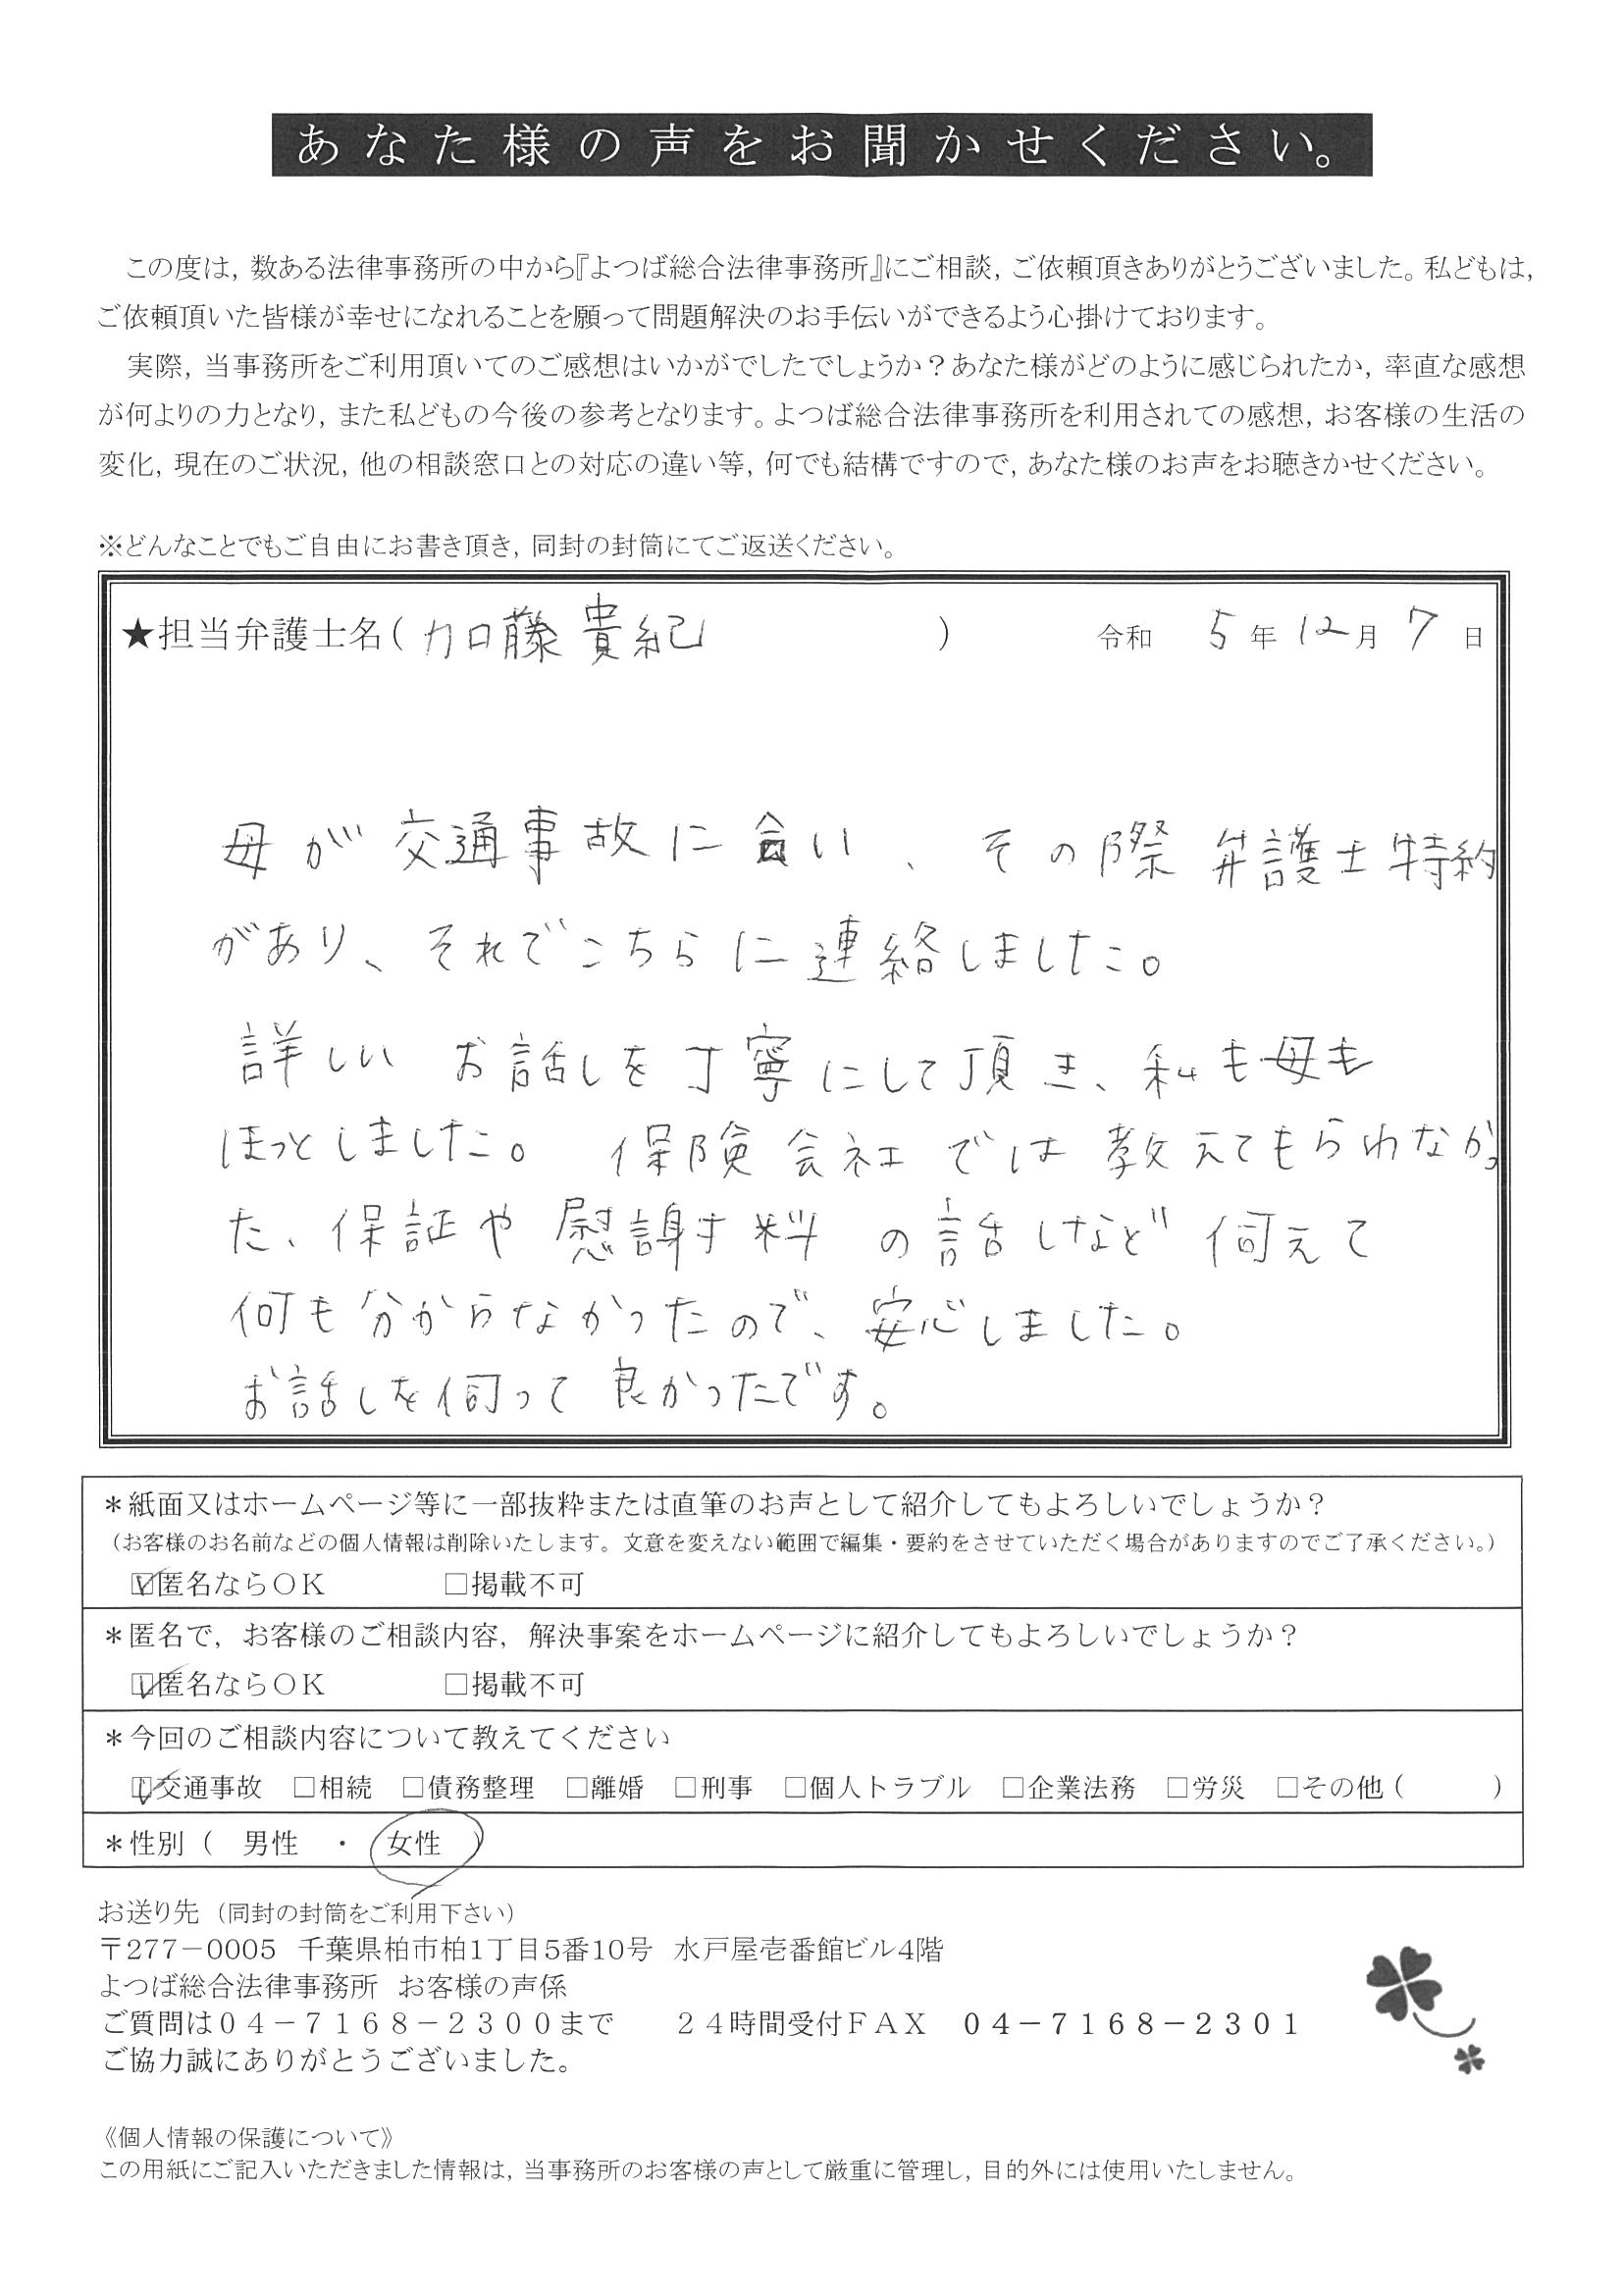 あなた様の声をお聞かせください。
この度は，数ある法律事務所の中から『よつば総合法律事務所』にご相談，ご依頼頂きありがとうございました。私どもは，
ご依頼頂いた皆様が幸せになれることを願って問題解決のお手伝いができるよう心掛けております。
実際，当事務所をご利用頂いてのご感想はいかがでしたでしょうか？あなた様がどのように感じられたか，率直な感想
が何よりの力となり，また私どもの今後の参考となります。よつば総合法律事務所を利用されての感想，お客様の生活の
変化，現在のご状況，他の相談窓口との対応の違い等，何でも結構ですので，あなた様のお声をお聴きかせください。
※どんなことでもご自由にお書き頂き，同封の封筒にてご返送ください。
★担当弁護士名（加藤貴紀　　　）　令和 5 年 12 月 7 日
母が交通事故に会い、その際弁護士特約
があり、それでこちらに連絡しました。
詳しいお話しを丁寧にして頂き、私も母も
ほっとしました。保険会社では教えてもらわなかっ
た、保証や慰謝料の話しなど伺えて
何も分からなかったので、安心しました。
お話しを伺って良かったです。
＊紙面又はホームページ等に一部抜粋または直筆のお声として紹介してもよろしいでしょうか？
（お客様のお名前などの個人情報は削除いたします。文意を変えない範囲で編集・要約をさせていただく場合がありますのでご了承ください。）
☑匿名ならＯＫ　□掲載不可
＊匿名で，お客様のご相談内容，解決事案をホームページに紹介してもよろしいでしょうか？
☑匿名ならＯＫ　□掲載不可
＊今回のご相談内容について教えてください
☑交通事故　□相続　□債務整理　□離婚　□刑事　□個人トラブル　□企業法務　□労災　□その他（　　　）
＊性別（　男性　・　女性　）
お送り先（同封の封筒をご利用下さい）
〒277－0005　千葉県柏市柏1丁目5番10号　水戸屋壱番館ビル4階
よつば総合法律事務所　お客様の声係
ご質問は０４－７１６８－２３００まで　２４時間受付ＦＡＸ　０４－７１６８－２３０１
ご協力誠にありがとうございました。
《個人情報の保護について》
この用紙にご記入いただきました情報は，当事務所のお客様の声として厳重に管理し，目的外には使用いたしません。